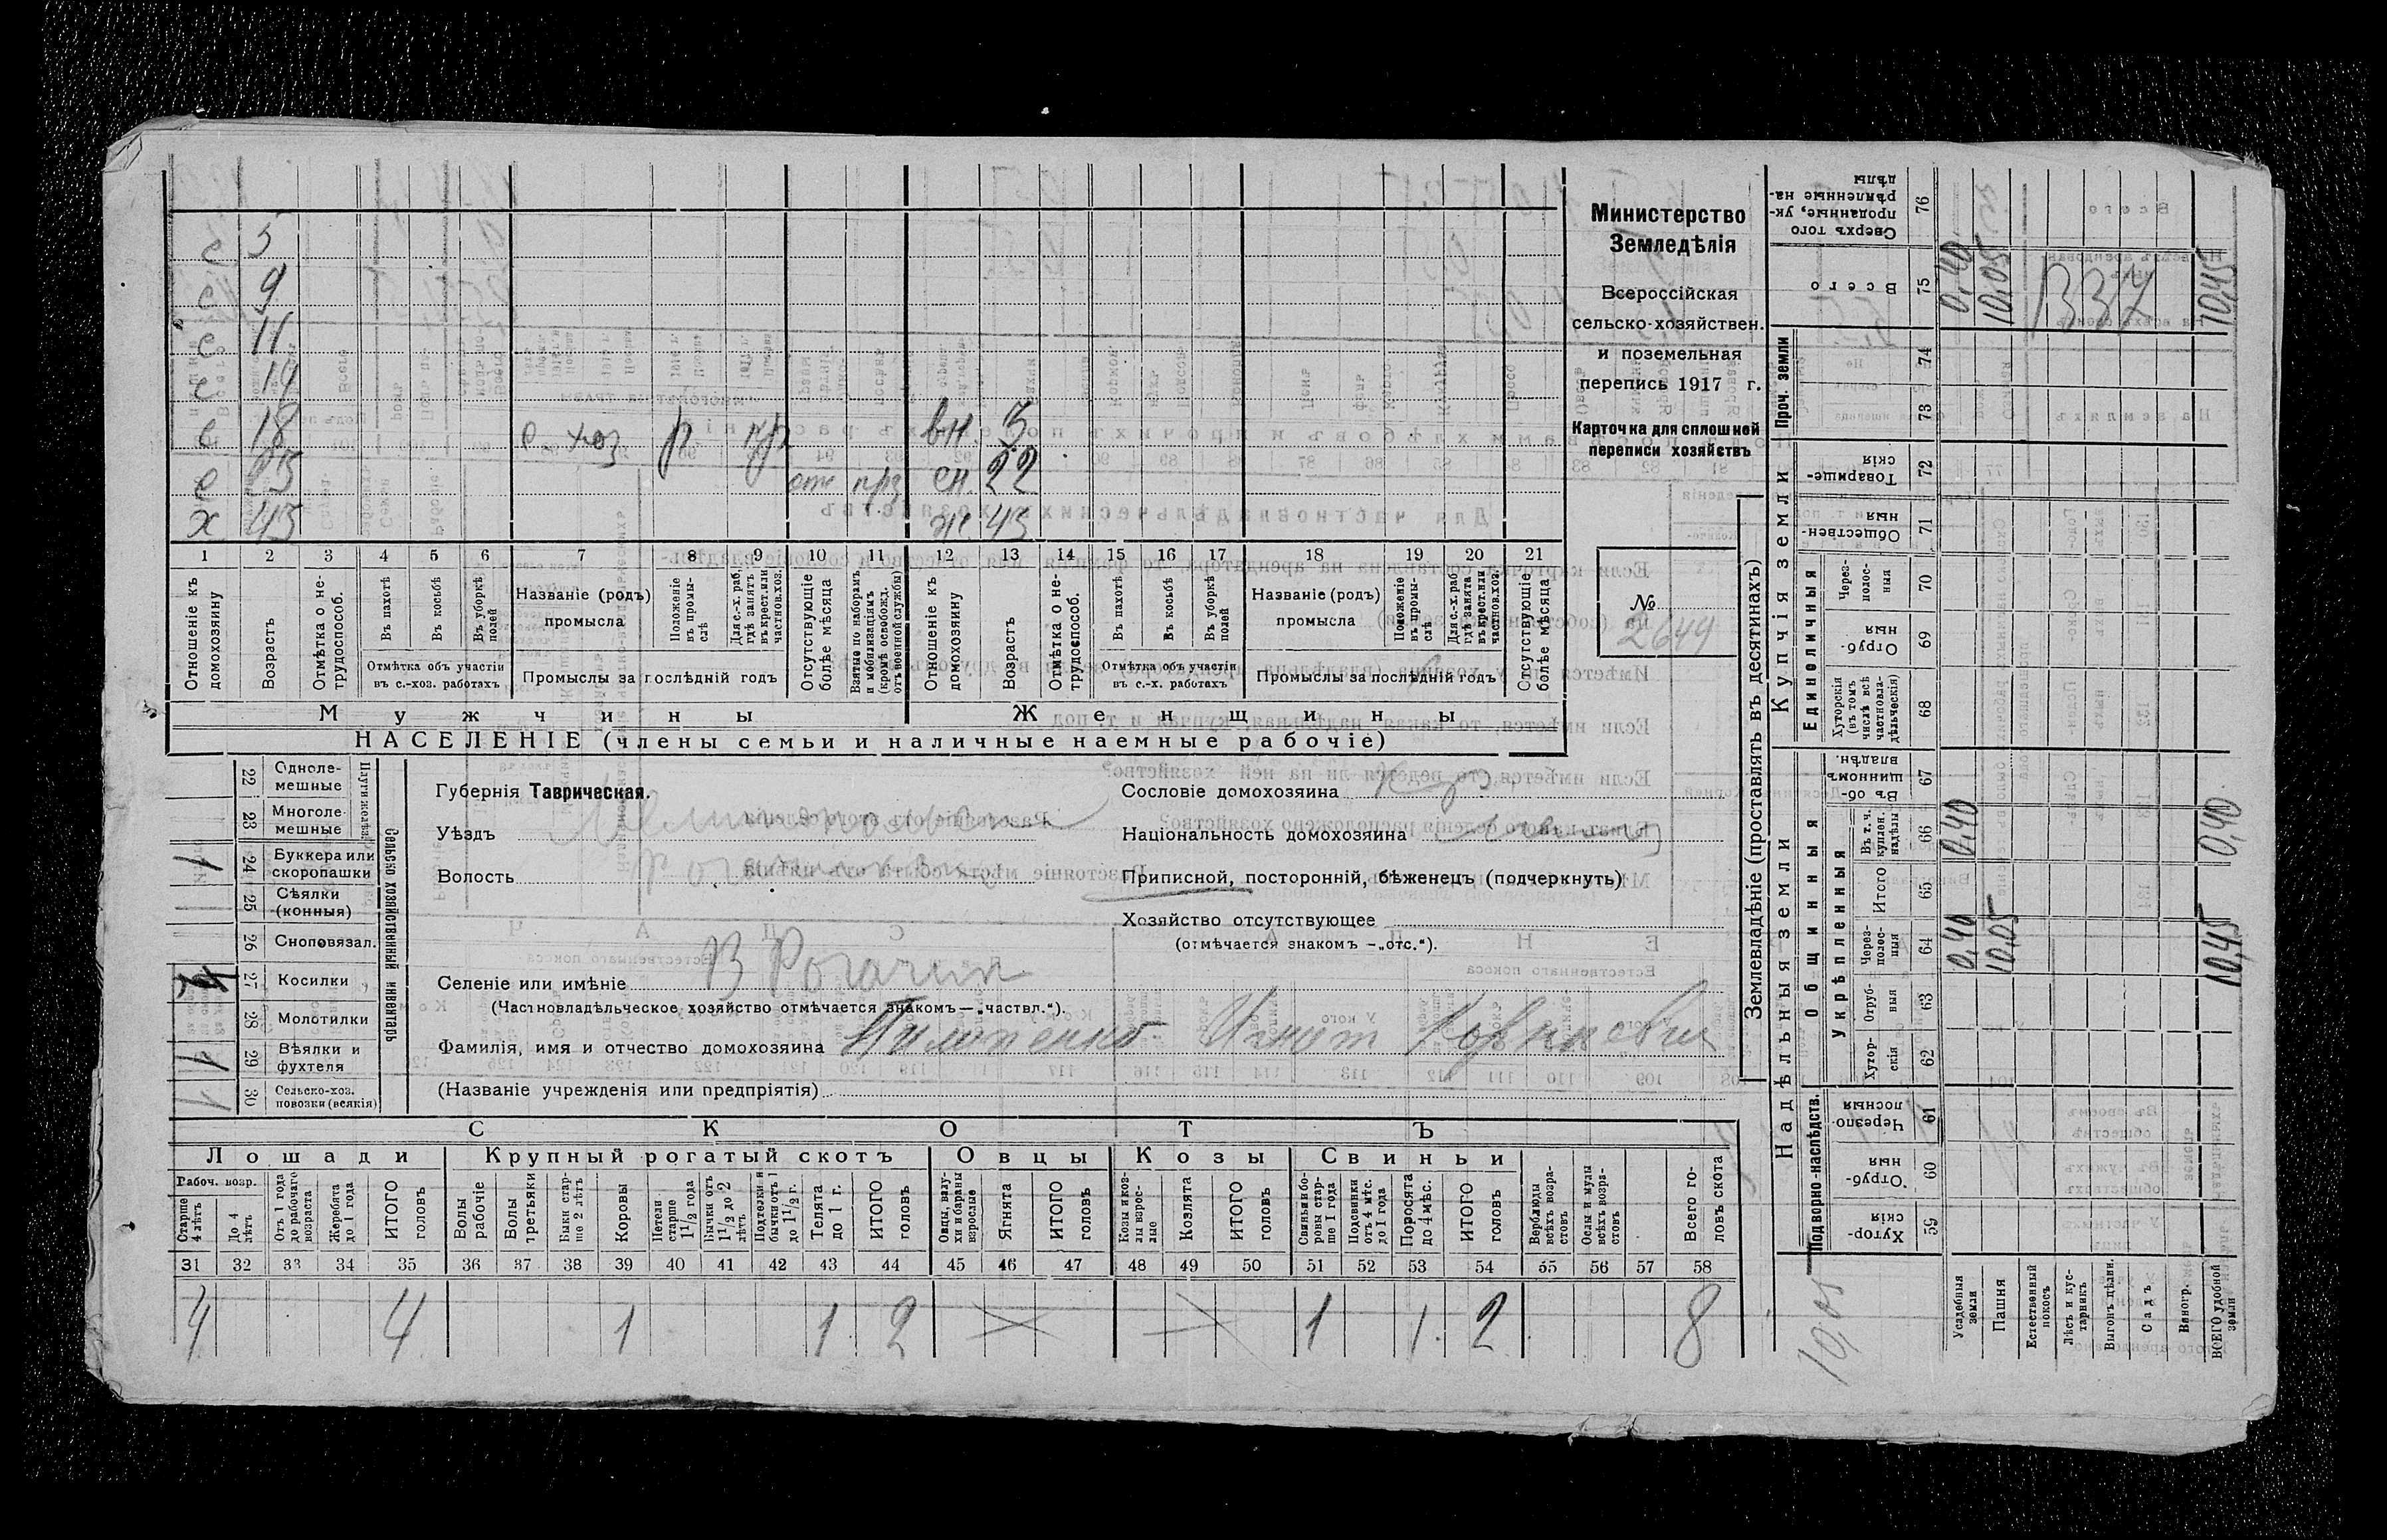 Министерство
Земледѣлія
Всероссійская
сельско-хозяйствен.
и поземельная
перепись 1917 г.
Карточка для сплошной
переписи хозяйствъ
№ 2649
с 5
с 9
с 11
с 14
с 18 с хоз р кр вн. 3
с отс сн. 22
х 43 ж. 43
1 2 3 4 5 6 7 8 9 10 11 12 13 14 15 16 17 18 19 20 21
Отношеніе къ домохозяину
Возрастъ
Отмѣтка о нетрудоспособ.
Въ пахотѣ
Въ косьбѣ
Въ уборкѣ полей
Отмѣтка объ участіи въ с.-хоз. работахъ
Названіе (родъ) промысла
Положеніе въ промыслѣ
Для с.-х. раб, гдѣ занятъ въ крест. или частнов. хоз.
Промыслы за послѣдній годъ
Отсутствующіе болѣе мѣсяца
Взятые по наборамъ и мобилизаціямъ (кромѣ освобожд. отъ военной службы)
Отношеніе къ домохозяину
Возрастъ
Отмѣтка о нетрудоспособ.
Въ пахотѣ
Въ косьбѣ
Въ уборкѣ полей
Отмѣтка объ участіи въ с.-х. работахъ
Названіе (родъ) промысла
Положеніе въ промыслѣ
Для с.-х. раб гдѣ занята въ крест. или частнов. хоз.
Промыслы за послѣдній годъ
Отсутствующіе болѣе мѣсяца
Мужчины
Женщины
НАСЕЛЕНІЕ (члены семьи и наличные наемные рабочіе)
Сельско хозяйственный инвентарь
Плуги желѣз.
22 Однолемешные
23 Многолемешные
24 Буккера или скоропашки 1
25 Сѣялки (конныя)
26 Сноповязал.
27 Косилки
28 Молотилки
29 Вѣялки и фухтеля 1
30 Сельско-хоз. повозки (всякія) 1
Губернія Таврическая.
Уѣздъ Мелитопольск
Волость
Селеніе или имѣніе В Рогачик
(Частновладѣльческое хозяйство отмѣчается знакомъ — „частвл.“).
Фамилія, имя и отчество домохозяина Пилипенко Игнат
(Названіе учрежденія или предпріятія)
Сословіе домохозяина Кр
Національность домохозяина
Приписной, посторонній, бѣженецъ (подчеркнуть)
Хозяйство отсутствующее
(отмѣчается знакомъ — „отс.“).
СКОТЪ
Лошади
Крупный рогатый скотъ
Овцы
Козы
Свиньи
Рабоч. возр.
Старше 4 лѣтъ
До 4 лѣтъ
Отъ 1 года до рабочаго возраста
Жеребята до 1 года
ИТОГО головъ
Волы рабочіе
Волы третьяки
Быки старше 2 лѣтъ
Коровы
Нетели старше 1 1/2 года
Бычки отъ 1 1/2 до 2 лѣтъ
Подтелки и бычки отъ 1 до 1 1/2 г.
Телята до 1 г.
ИТОГО головъ
Овцы, валухи и бараны взрослые
Ягнята
ИТОГО головъ
Козы и козлы взрослые
Козлята
ИТОГО головъ
Свиньи и боровы старше 1 года
Подсвинки отъ 4 мѣс. до 1 года
Поросята до 4 мѣс.
ИТОГО головъ
Верблюды всѣхъ возрастовъ
Ослы и мулы всѣхъ возрастовъ
Всего головъ скота
31 32 33 34 35 36 37 38 39 40 41 42 43 44 45 46 47 48 49 50 51 52 53 54 55 56 57 58
4 4 1 1 2 1 1 2 8
Землевладѣніе (проставлять въ десятинахъ)
Надѣльныя земли
Купчія земли
Проч. земли
Подворно-наслѣдств.
Общинныя
Укрѣпленныя
Единоличныя
Хуторскія 59
Отрубныя 60
Черезполосныя 61
Хуторскія 62
Отрубныя 63
Черезполосныя 64
Итого 65
Въ т. ч. куплен. надѣлы 66
Въ общинномъ владѣн. 67
Хуторскія (въ томъ числѣ всѣ частновладѣльческія) 68
Отрубныя 69
Черезполосныя 70
Общественныя 71
Товарищескія 72
73
74
Всего 75
Сверхъ того проданные, укрѣпленные надѣлы 76
Усадебныя земли 0,40 0,40 0,40
Пашня 10,05 10,05
Естественный покосъ
Лѣсъ и кустарникъ
Выгонъ цѣлин.
Садъ
Виногр.
ВСЕГО удобной земли 10,45 0,40 10,45
10,05